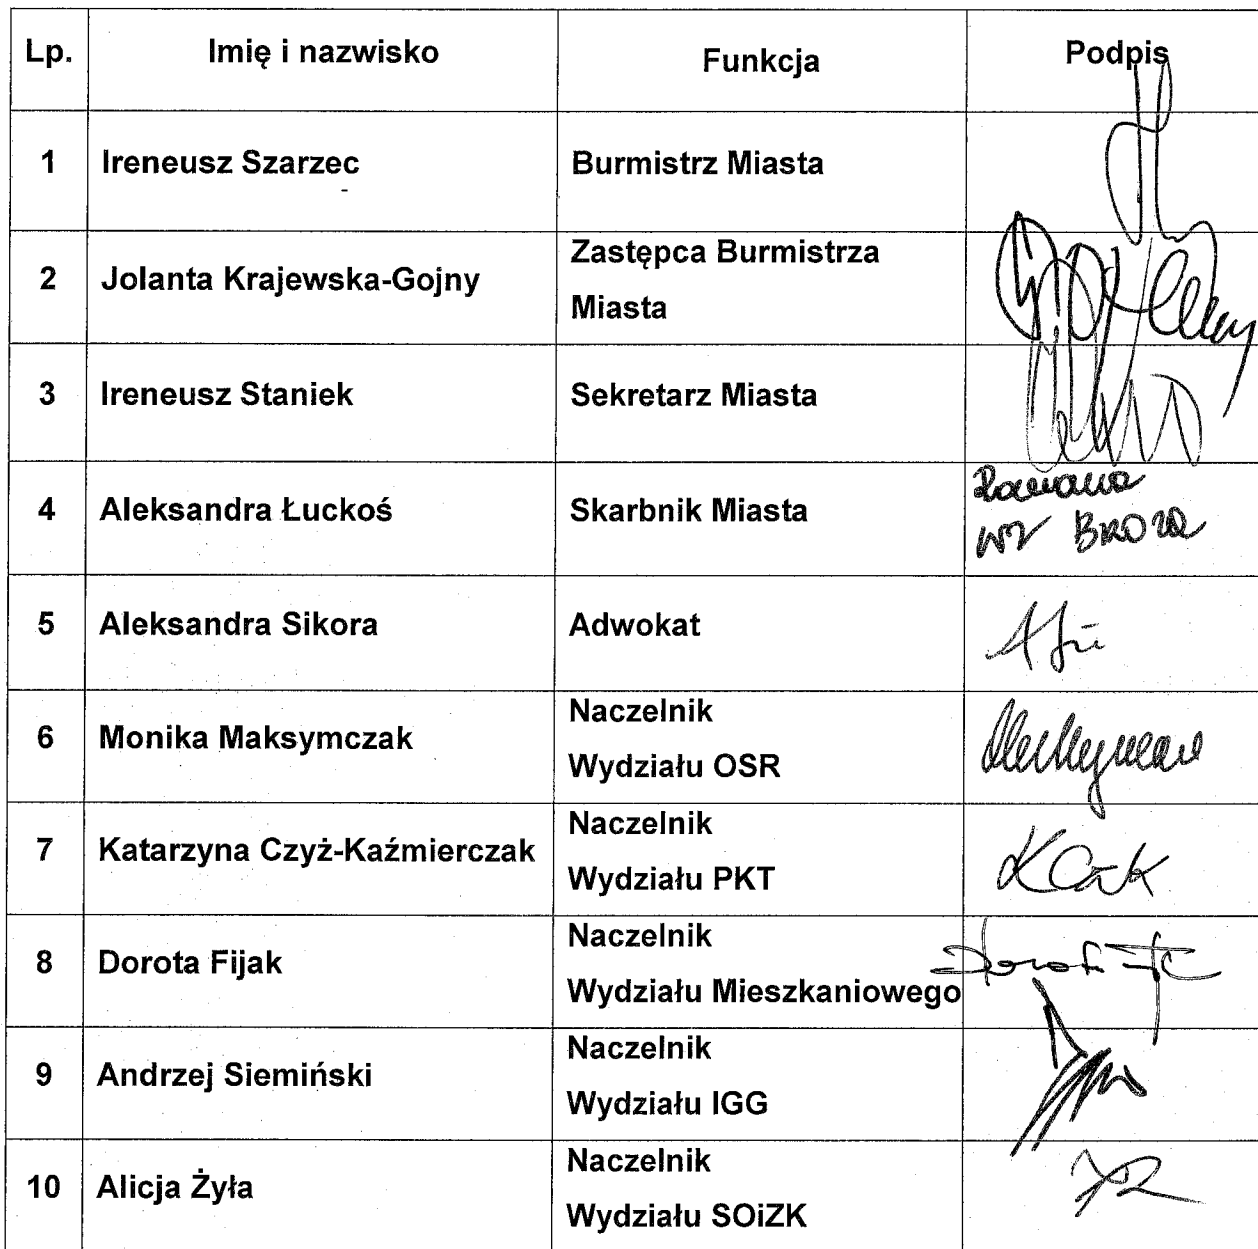 Lp. Imię i nazwisko Funkcja Podpis
1 Ireneusz Szarzec Burmistrz Miasta
2 Jolanta Krajewska-Gojny Zastępca Burmistrza
Miasta
3 Ireneusz Staniek Sekretarz Miasta
4 Aleksandra Łuckoś Skarbnik Miasta
5 Aleksandra Sikora Adwokat
6 Monika Maksymczak Naczelnik
Wydziału OSR
7 Katarzyna Czyż-Kaźmierczak Naczelnik
Wydziału PKT
8 Dorota Fijak Naczelnik
Wydziału Mieszkaniowego
9 Andrzej Siemiński Naczelnik
Wydziału IGG
10 Alicja Żyła Naczelnik
Wydziału SOiZK